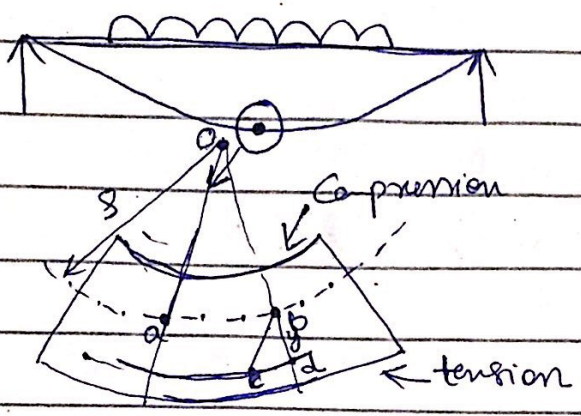 O
Compression
ρ
a
b
c
d
tension